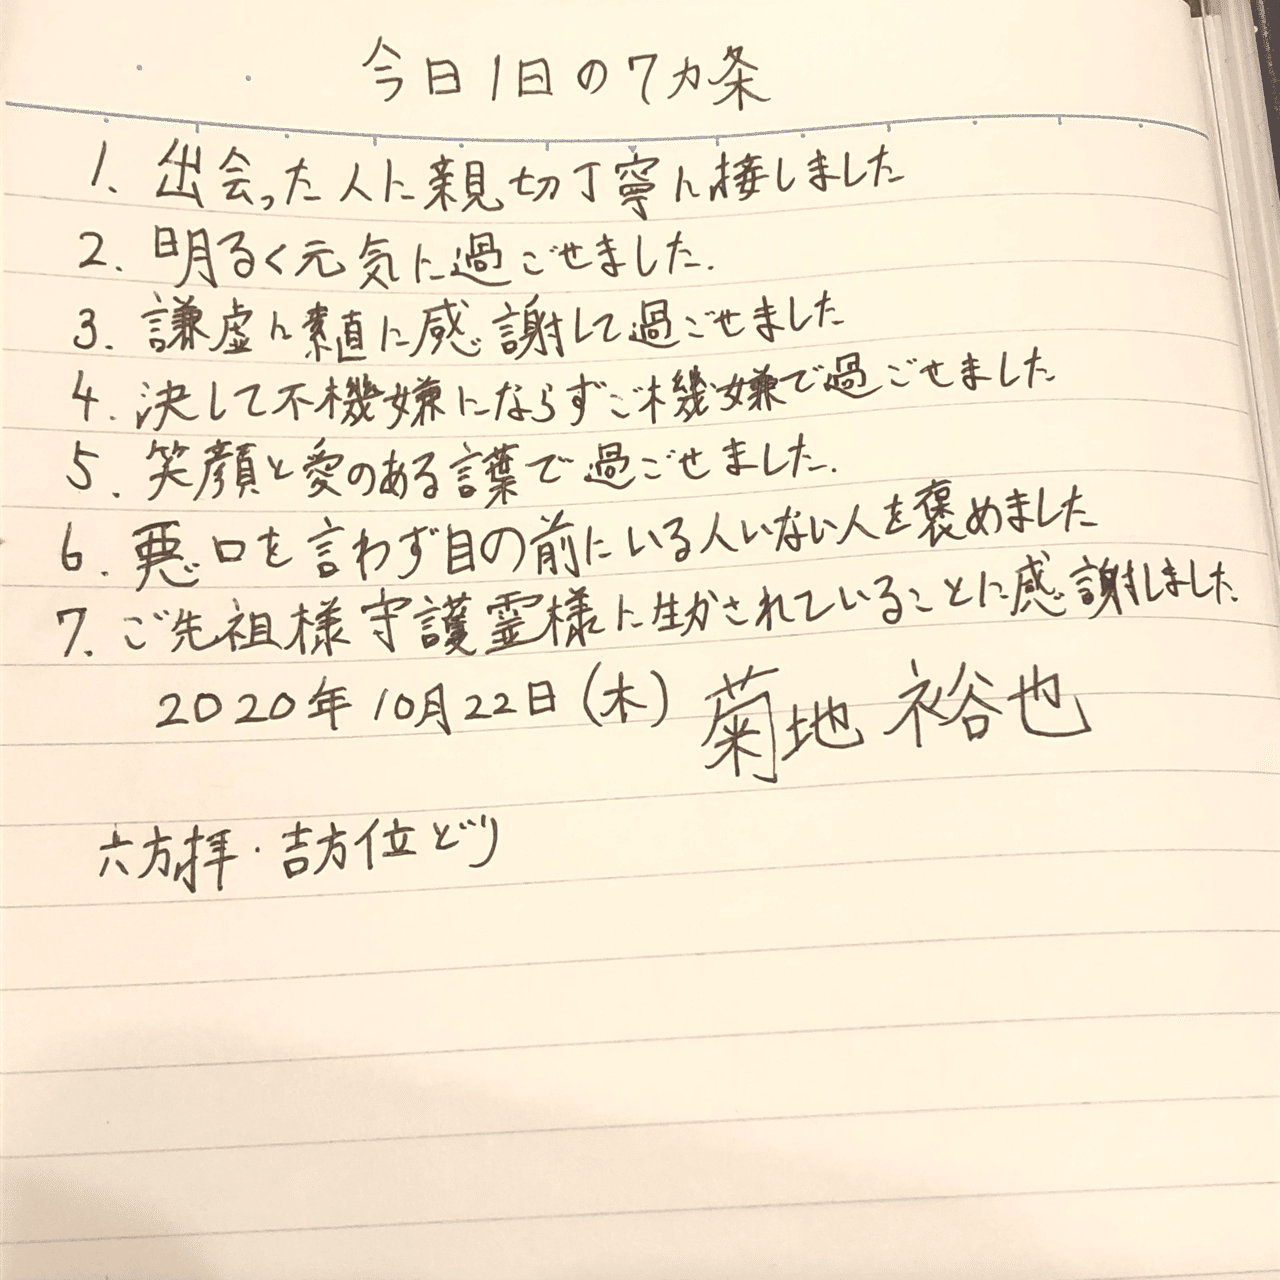 今日1日の7カ条
1. 出会った人に親切丁寧に接しました
2. 明るく元気に過ごせました.
3. 謙虚に素直に感謝して過ごせました
4. 決して不機嫌にならずご機嫌で過ごせました
5. 笑顔と愛のある言葉で過ごせました.
6. 悪口を言わず目の前にいる人いない人を褒めました
7. ご先祖様守護霊様に生かされていることに感謝しました
2020年10月22日(木) 菊地裕也
六方拝・吉方位どり